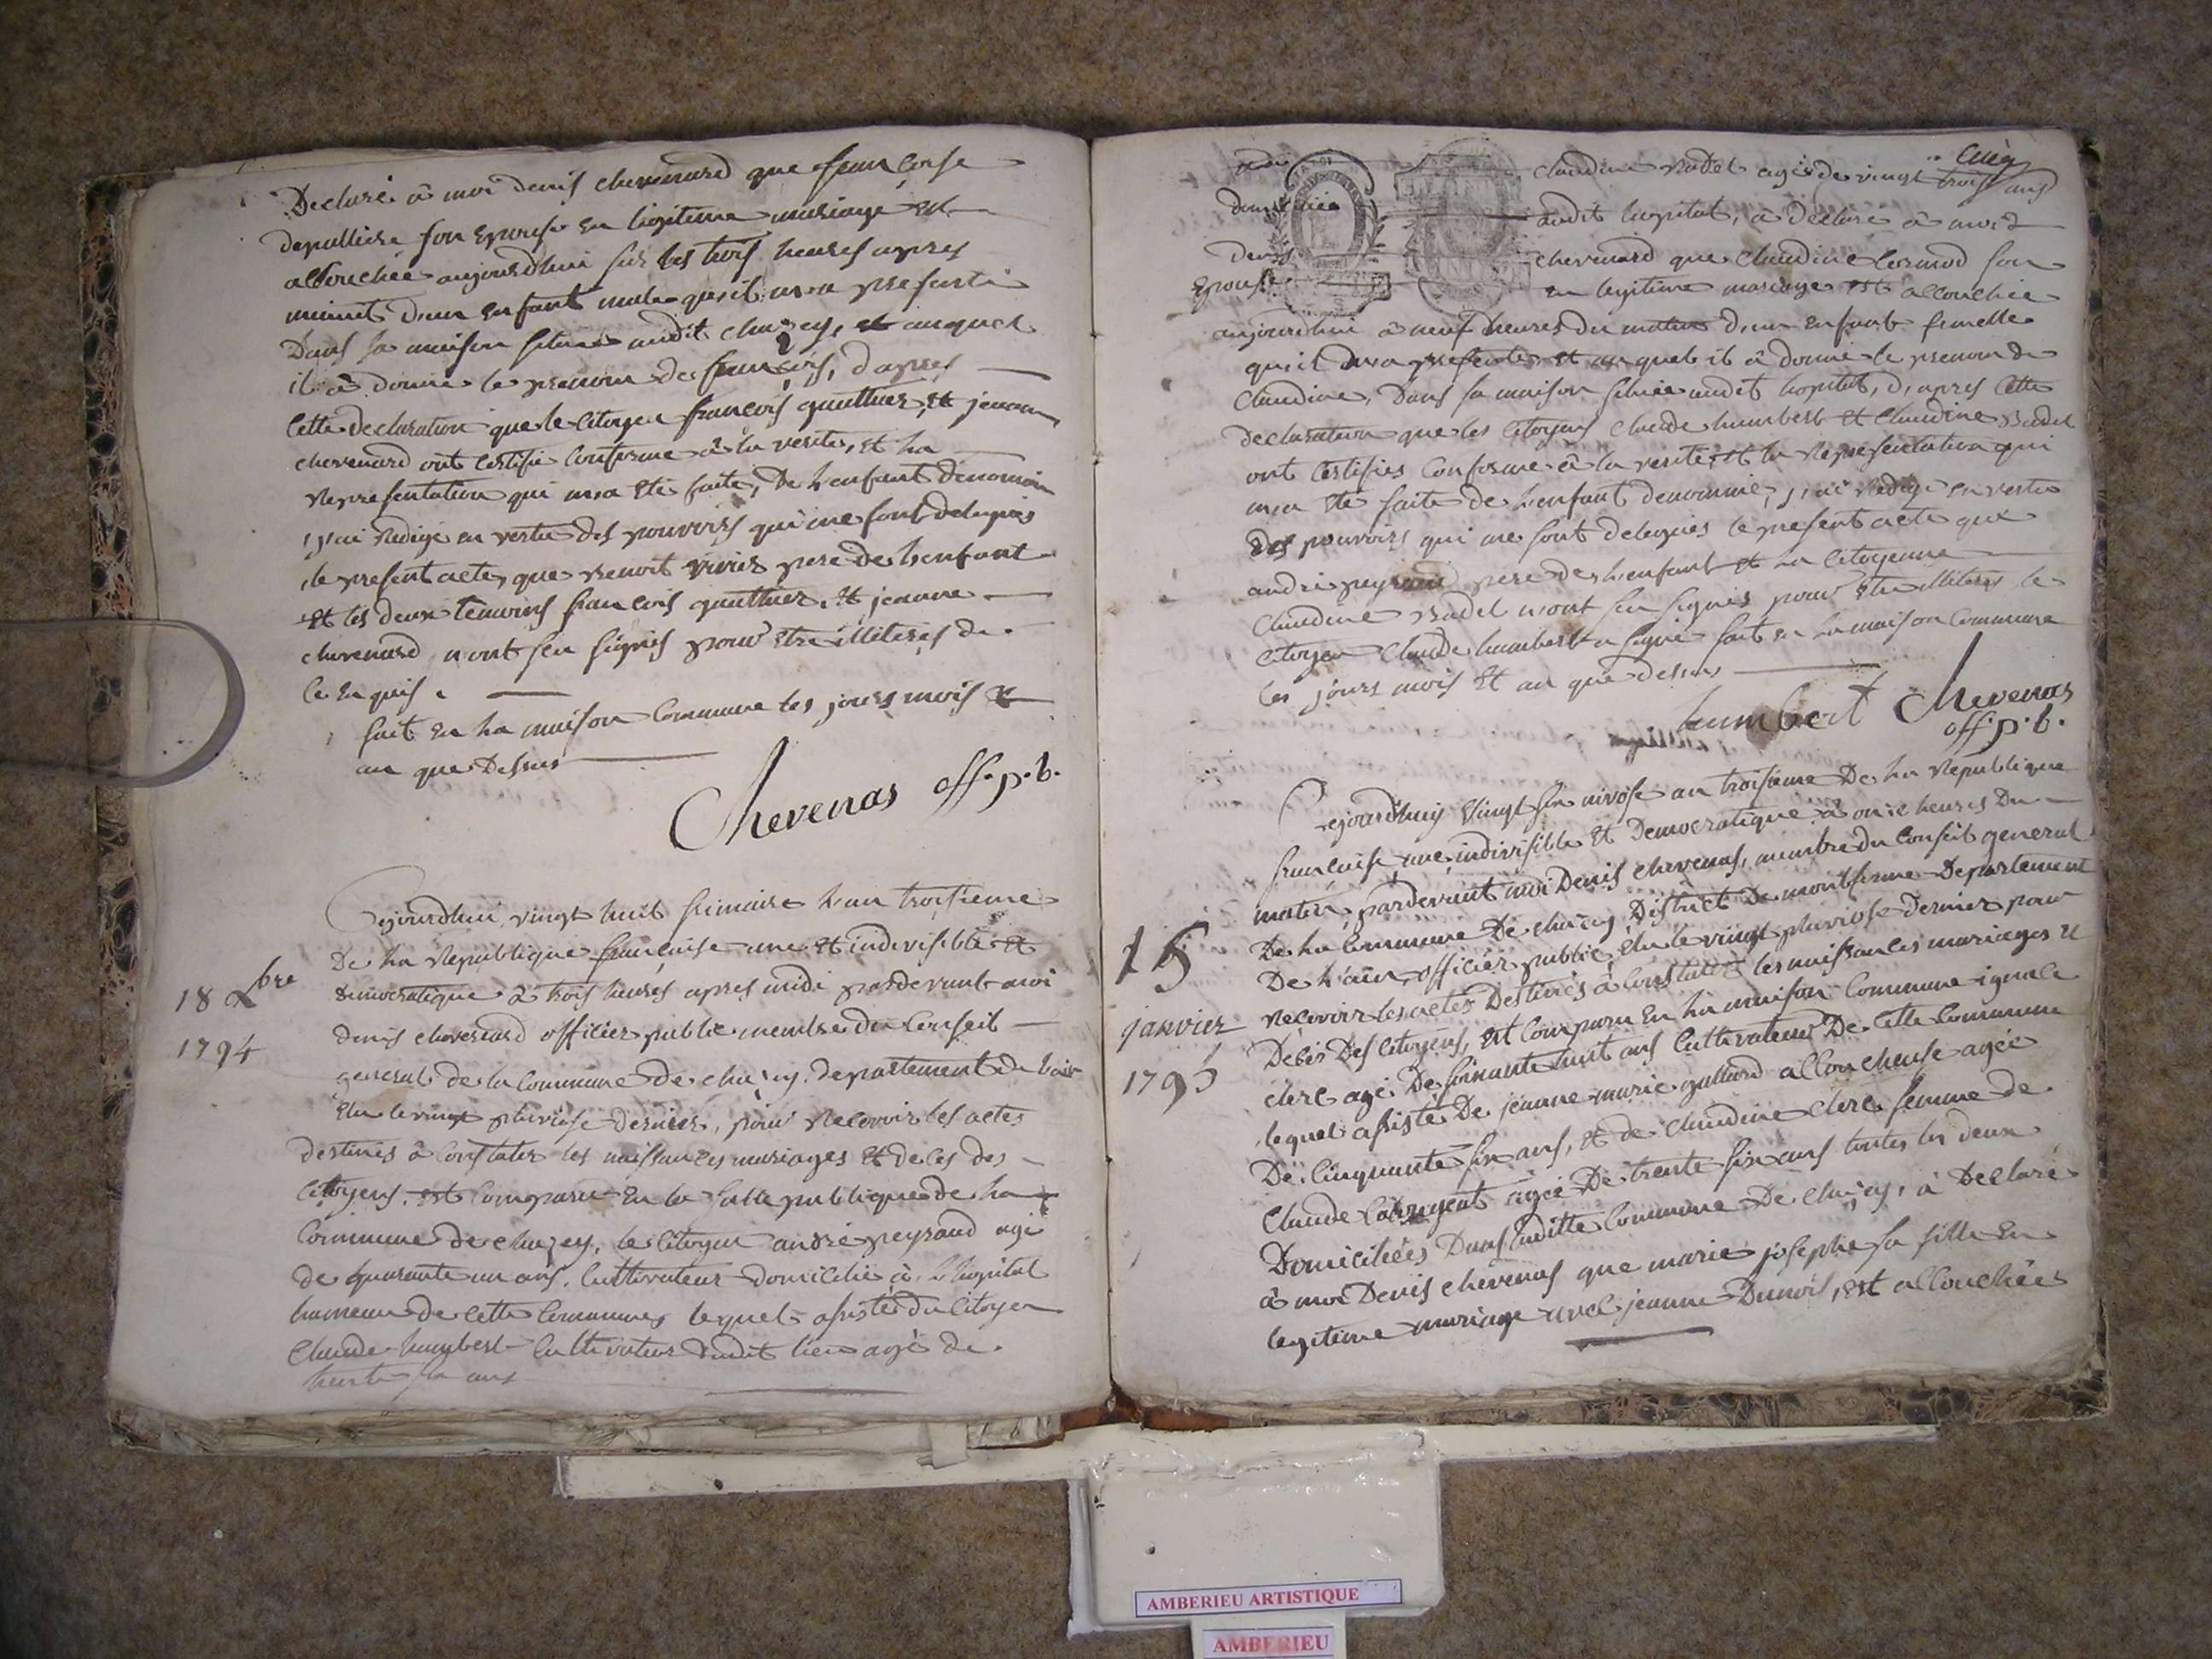 Declaré à moi denis chevenard que francoise
depalliere son epouse en legitime mariage est
accouchée aujourdhui sur les trois heures apres
minuit d'un enfant male quil m'a presenté
Dans sa maison située audit chazey, et auquel
il à donné le prenom de francois, d'apres
cette declaration que le citoyen francois gauthier et jeanne
chevenard ont certifié conforme à la verité, et la
representation qui m'a été faite, de l'enfant denommé
j'ai redigé en vertu des pouvoirs qui me sont delegués
le present acte, que benoit vivier pere de l'enfant
et les deux temoins francois gauthier, et jeanne
chevenard n'ont seu signés pour etre illiterés de
ce enquis.
fait en la maison commune les jours mois &
an que dessus
Chevenas off.p.b.
18 Xbre
1794
Cejourdhui vingt huit frimaire l'an troisieme
De la Republique francaise une et indivisible et
democratique à trois heures apres midi pardevant moi
denis chevenard officier public membre du conseil
general de la commune de chazey departement de l'ain
elu le vingt pluviose dernier, pour recevoir les actes
destinés à constater les naissances mariages et deces des
citoyens. est comparu en la salle publique de la
commune de chazey, le citoyen andré peyraud agé
de quarante un ans. cultivateur domicilié à l'hopital
hameau de cette commune lequel assisté du citoyen
Claude humbert cultivateur dudit lieu agé de
trente six ans
cinq
claudine Radel agée de vingt trois ans
domiciliée audit hopital, à declaré à moi
denis chevenard que claudine cormod son
Epouse en legitime mariage est accouchée
aujourdhui à neuf heures du matin d'un enfant femelle
qu'il m'a presenté, et auquel il à donné le prenom de
Claudine, Dans sa maison située audit hopital, d'apres cette
declaration que les citoyens claude humbert et claudine Radel
ont certifiés conforme à la verité, et la representation qui
m'a été faite de l'enfant denommé, j'ai redigé en vertu
des pouvoirs qui me sont delegués le present acte que
andré peyraud pere de l'enfant et la citoyenne
claudine Radel n'ont seu signés pour etre illiterés le
citoyen claude humbert a signé fait en la maison commune
les jours mois et an que dessus
humbert Chevenas
off.p.b.
16
janvier
1795
Cejourdhuy vingt six nivose an troisieme De la Republique
francaise une, indivisible et Democratique à onze heures Du
matin, pardevant moi Denis chevenas, membre du conseil general
De la commune De chazey District De montferme Departement
De l'ain, officier public, élu le vingt pluviose dernier pour
recevoir les actes Destinés à constater les naissances mariages et
Décès Des citoyens, est comparu en la maison commune ignace
clerc agé De soixante huit ans cultivateur De cette commune
lequel assisté De jeanne marie gallard accoucheuse agée
De cinquante six ans, et de claudine clerc femme de
Claude agée De trente six ans toutes les deux
Domiciliées Dans laditte commune De chazey, à Declaré
à moi Denis chevenas que marie josephe sa fille en
legitime mariage avec jeanne Dunoir, est accouchée
AMBERIEU ARTISTIQUE
AMBERIEU